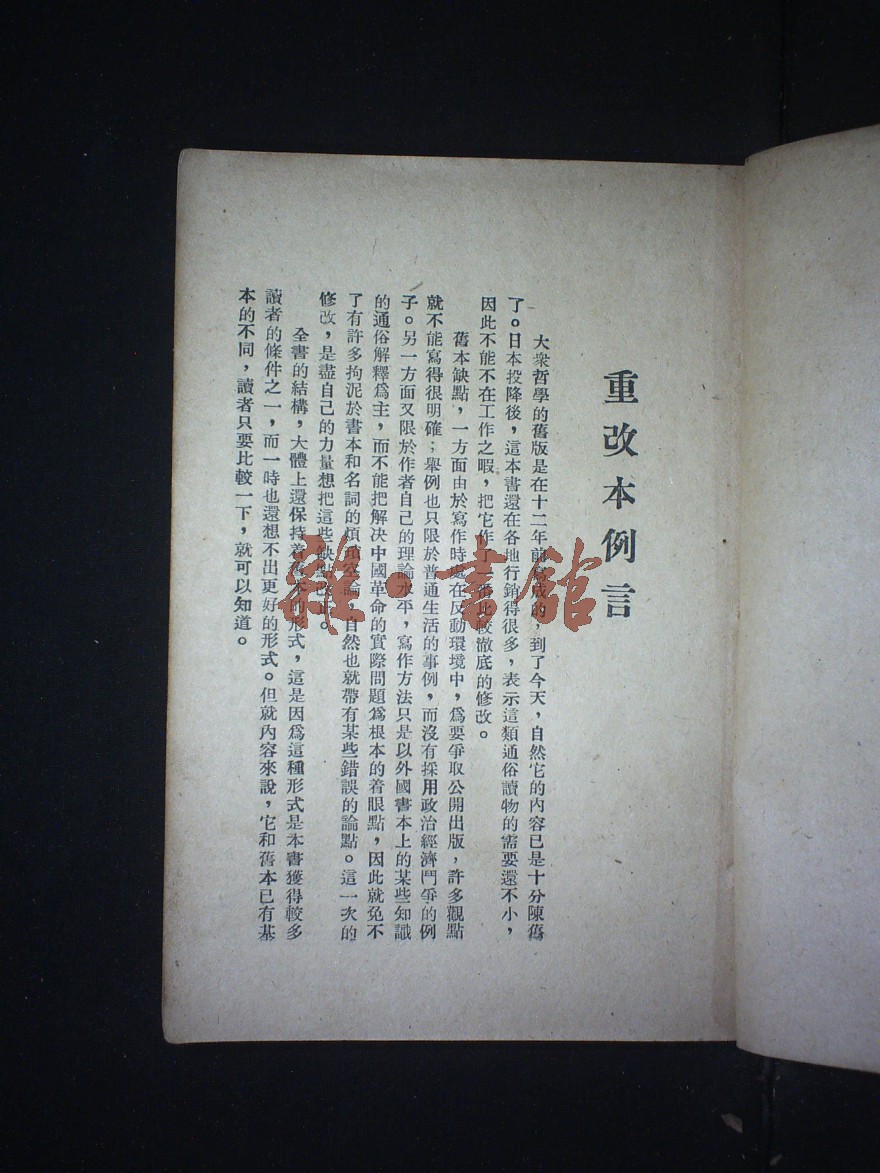 重改本例言
大衆哲學的舊版是在十二年前寫成的，到了今天，自然它的內容已是十分陳舊
了。日本投降後，這本書還在各地行銷得很多，表示這類通俗讀物的需要還不小，
因此不能不在工作之暇，把它作了一番比較澈底的修改。
舊本缺點，一方面由於寫作時處在反動環境中，爲要爭取公開出版，許多觀點
就不能寫得很明確；舉例也只限於普通生活的事例，而沒有採用政治經濟鬥爭的例
子。另一方面又限於作者自己的理論水平，寫作方法只是以外國書本上的某些知識
的通俗解釋爲主，而不能把解決中國革命的實際問題爲根本的着眼點，因此就免不
了有許多拘泥於書本和名詞的煩瑣空論，自然也就帶有某些錯誤的論點。這一次的
修改，是盡自己的力量想把這些缺點。
全書的結構，大體上還保持着舊本的形式，這是因爲這種形式是本書獲得較多
讀者的條件之一，而一時也還想不出更好的形式。但就內容來說，它和舊本已有基
本的不同，讀者只要比較一下，就可以知道。
雜·書館